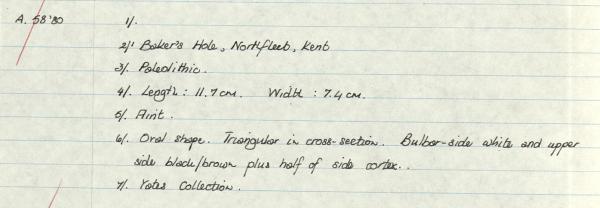 A. 58'80 1/.
2/. Baker's Hole, Northfleet, Kent
3/. Paleolithic.
4/. Length : 11.7cm. Width : 7.4cm.
5/. Flint.
6/. Oval shape. Triangular in cross-section. Bulbar-side white and upper
side black/brown plus half of side cortex..
7/. Yates Collection.